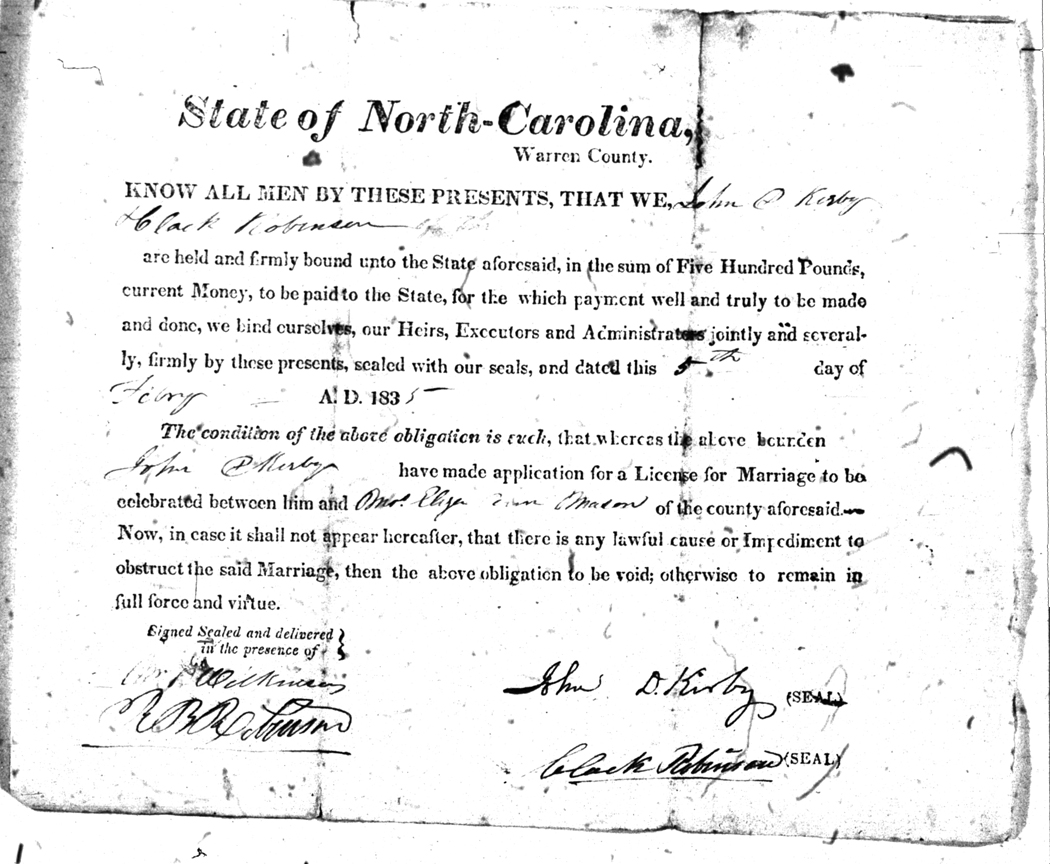 State of North-Carolina,
Warren County.
KNOW ALL MEN BY THESE PRESENTS, THAT WE, John D Kirby
& Clack Robinson
are held and firmly bound unto the State aforesaid, in the sum of Five Hundred Pounds,
current Money, to be paid to the State, for the which payment well and truly to be made
and done, we bind ourselves, our Heirs, Executors and Administrators jointly and several-
ly, firmly by these presents, sealed with our seals, and dated this 5th day of
Febry A. D. 1835
The condition of the above obligation is such, that whereas the above bounden
John D Kirby have made application for a License for Marriage to be
celebrated between him and Eliza Ann Mason of the county aforesaid.
Now, in case it shall not appear hereafter, that there is any lawful cause or Impediment to
obstruct the said Marriage, then the above obligation to be void; otherwise to remain in
full force and virtue.
Signed Sealed and delivered
in the presence of
Wilkinson
R B Robinson
John D. Kirby (SEAL)
Clack Robinson (SEAL)